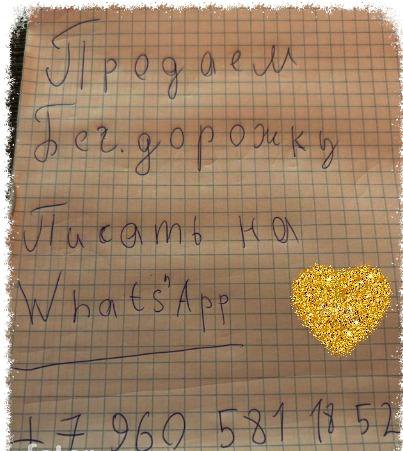 Продаем
Бег. дорожку
Писать на
Whats'App
+7 960 581 18 52